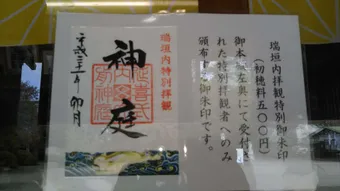 瑞垣内拝観特別御朱印
(初穂料五〇〇円)
御本殿左奥にて受付
れた特別拝観者へのみ
頒布 御朱印です。
瑞垣内特別拝観
神庭
平成三十一年 卯月